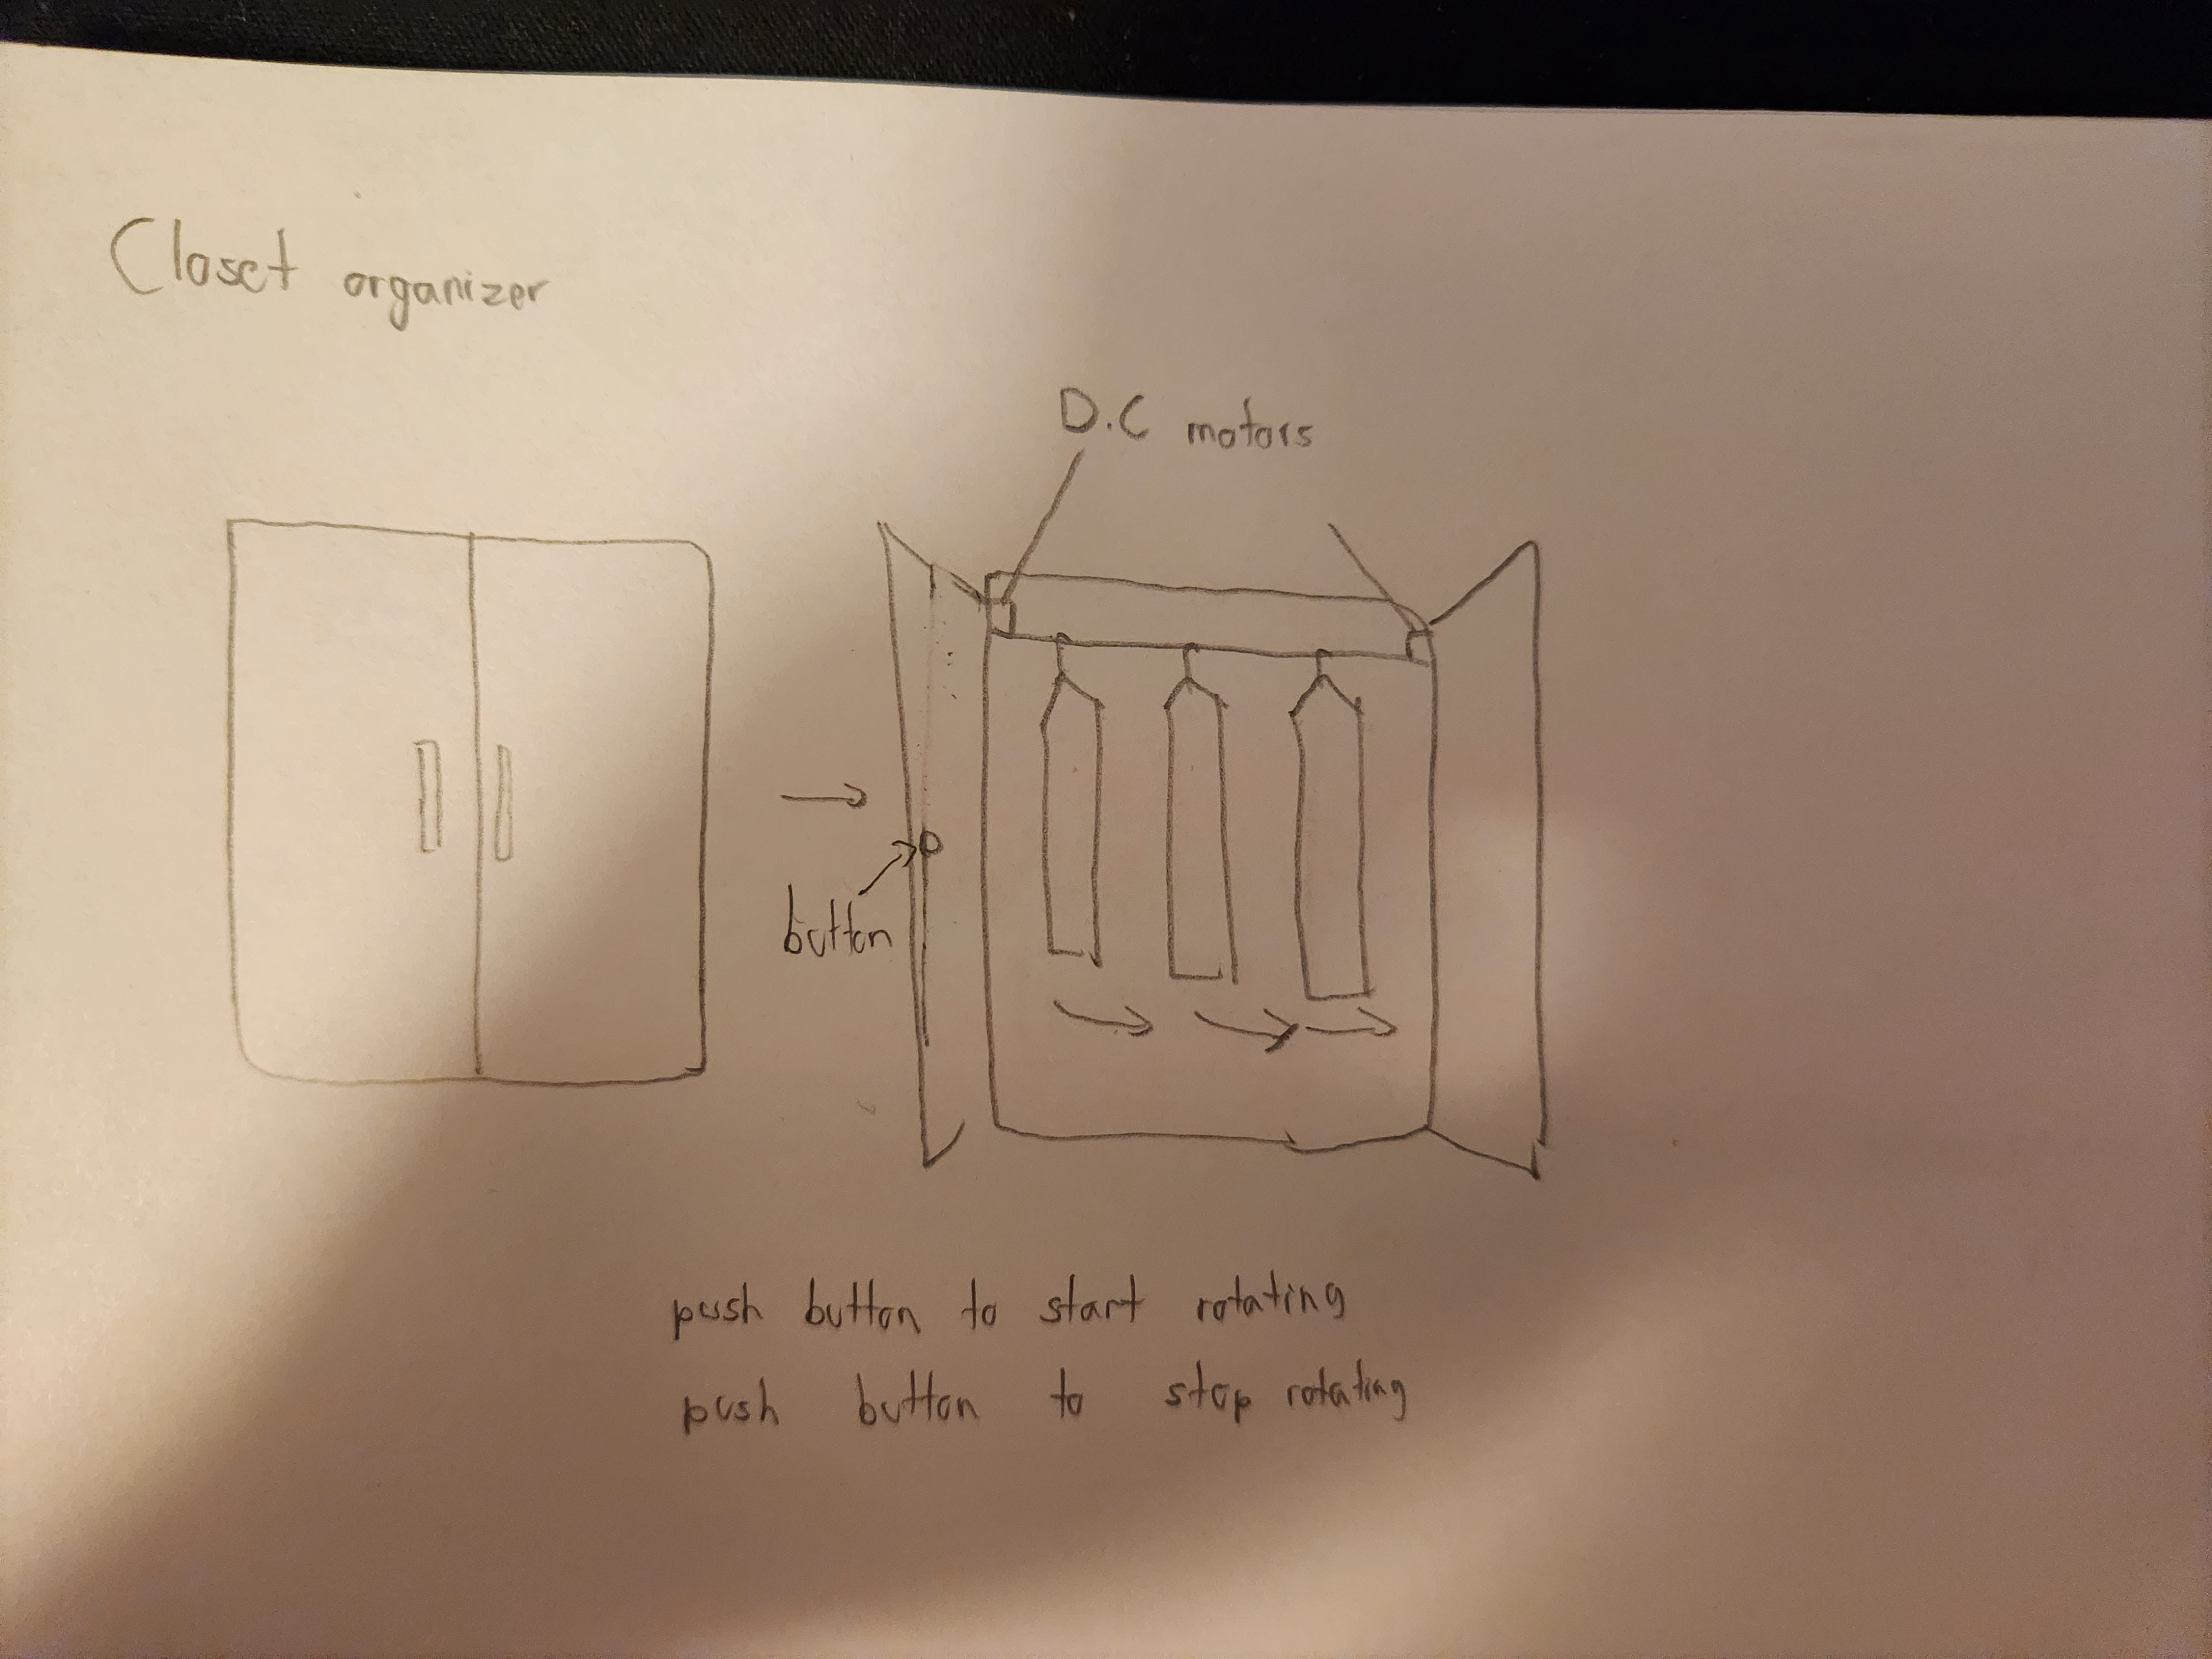 Closet organizer
D.C motors
button
push button to start rotating
push button to stop rotating